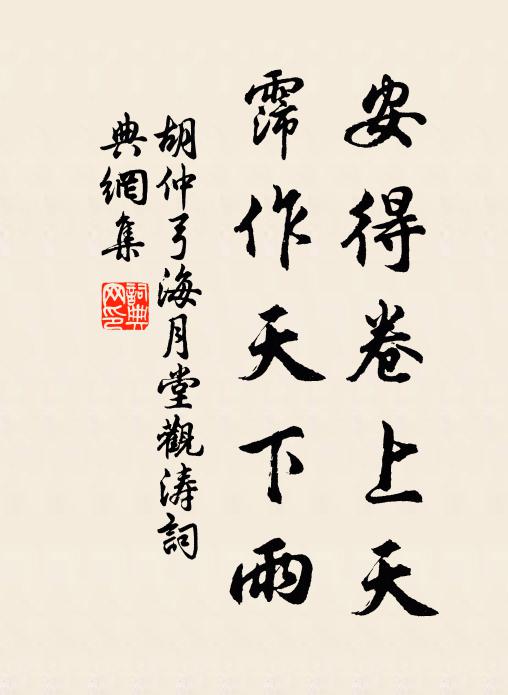 安得卷上天
霈作天下雨
胡仲弓海月堂觀濤詞
典網集
詞典網印